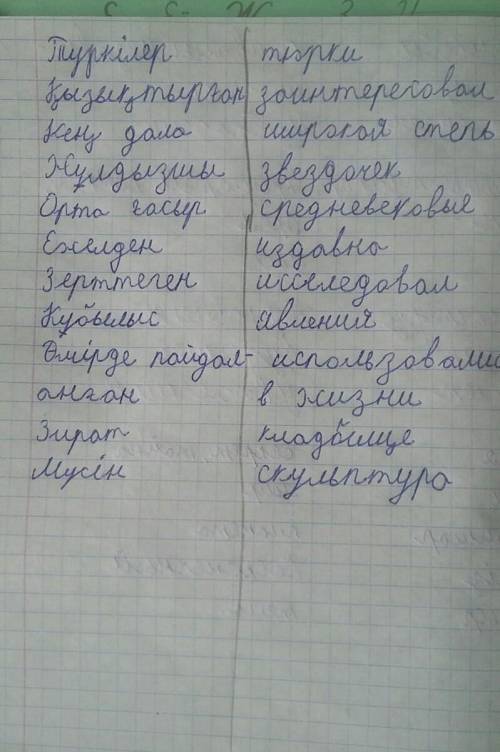 Түркілер тюрки
Қызықтырған заинтересовал
Кең дала широкая степь
Жұлдызшы звездочек
Орта ғасыр средневековые
Ежелден издавна
Зерттеген исследовал
Құбылыс явления
Өмірде пайдал- использовались
анған в жизни
Зират кладбище
Мүсін скульптура